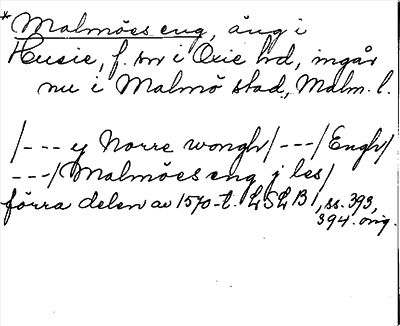 *Malmöes eng, äng i
Husie, f. sn i Oxie hd, ingår
nu i Malmö stad, Malm. l.
/--- ey Norre wongh/---/Engh/
---/Malmöes eng j les/
förra delen av 1570-t. LSLB, ss. 393,
394. orig.